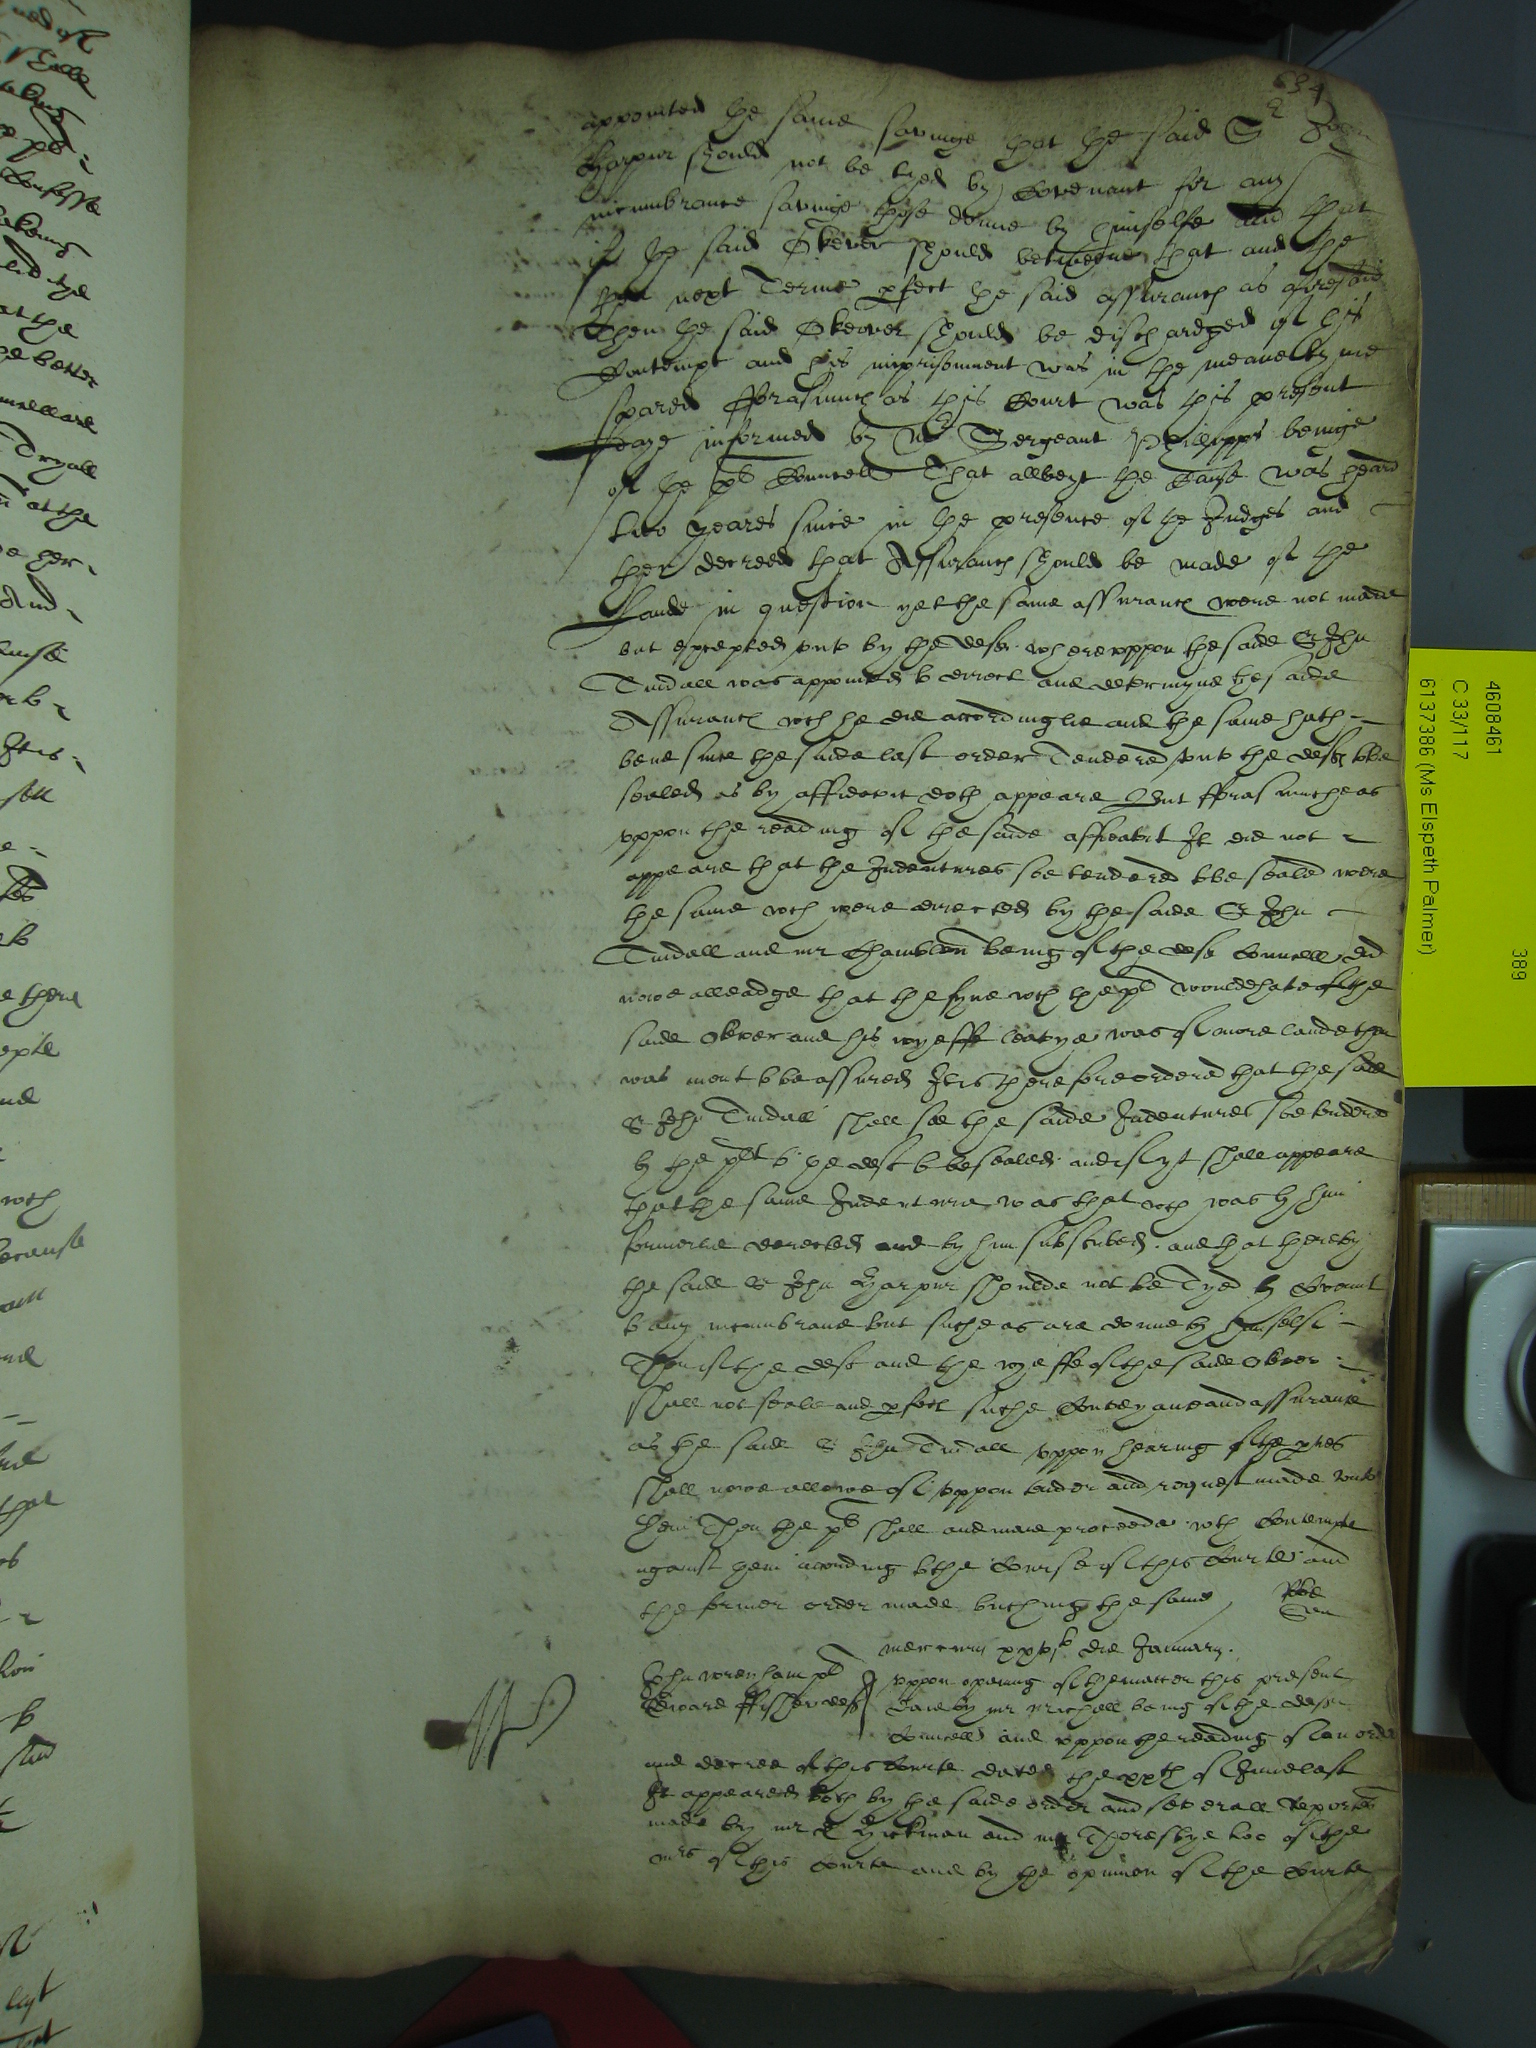 634
appointed the same savinge that the said Sr John
Harpur should not be tyed by Covenant for any
incumbrance savinge those donne by himselfe and that
if the said Okever should betweene that and the
then next Terme pfect the said assuranc as aforesaid
Then the said Okeover should be dischardged of his
Contempt and his imprisonment was in the meane tyme
spared fforasmuch as this Court was this present
daye informed by Mr Sergeant Phillipps beinge
of the pl Councell That albeyt the Cause was heard
two yeares since in the presence of the Judges and
then decreed that Assuranc should be made of the
Lande in question yet the same assuranc were not made
but excepted unto by the deft whereuppon the saide Sr John
Tindall was appointed to direct and determyne the saide
Assuranc wch he did accordinglie and the same hath
bene since the saide last order Tendered unto the deft to be
sealed as by affidavit doth appeare But fforasmuche as
uppon the reading of the saide affidavit It did not
appeare that the Indentures soe tendered to be sealed were
the same wch were directed by the saide Sr John
Tindall and mr Chamberlen being of the deft Councell did
nowe alleadge that the fyne wch the pl would have of the
saide Okever and his wyeffe leavye was of more lande then
was ment to be assured It is therefore ordered that the saide
Sr John Tindall shall see the saide Indentures soe tendered
by the plt to the deft to be sealed and if yt shall appeare
that the same Indenture was that wch was by him
formerlie directed and by him subscribed and that thereby
the saide Sr John Harpur shoulde not be Tyed by Covenant
to any incumbrance but suche as are donne by himselfe
Then if the deft and the wyeffe of the saide Okever
shall not seale and pfect suche Conveyance and assurance
as the saide Sr John Tindall uppon hearing of the pties
shall nowe allowe of uppon tender and request made unto
them Then the pl shall and maie proceede wth Contempte
against them according to the Course of this Courte and
the former order made touching the same
Mercurij xxvjto die Januarij
John Wrenham pl
Edward ffisher deft
Uppon opening of the matter this present
daie by mr Michell being of the deft
Councell and uppon the reading of an order
and decree of this Courte dated the xxth of June last
It appeared both by the saide order and severall Reportes
made by mr Hickman and mr Thoresbye too of the
mrs of this Courte and by the opinion of the Courte
4608461
C 33/117
6137386 (Ms Elspeth Palmer)
389